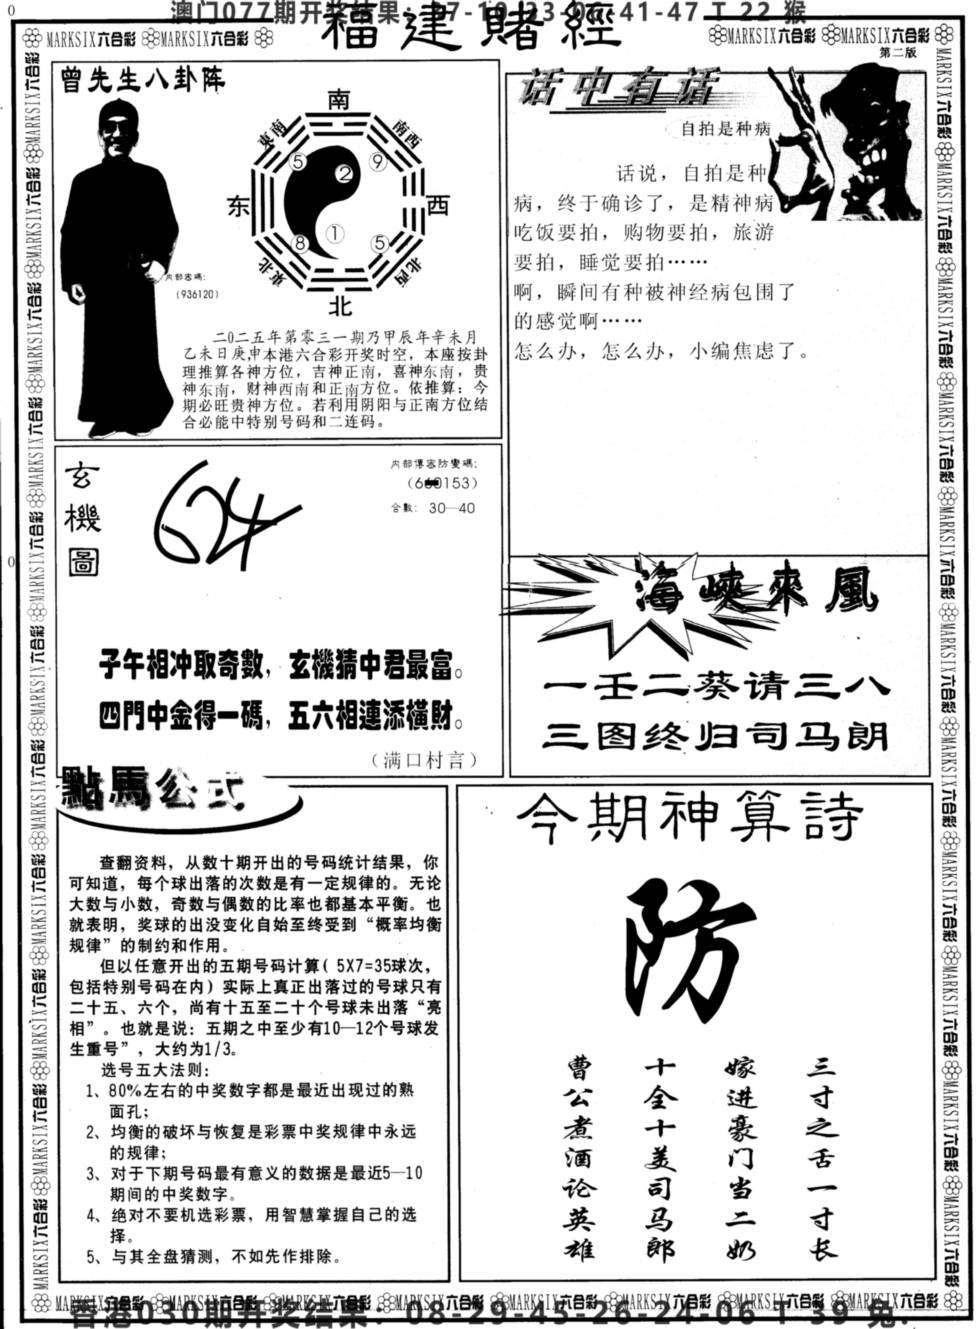 澳门077期开奖结果:
41-47 T 22 猴
福建賭經
MARKSIX六合彩 MARKSIX六合彩
MARKSIX六合彩 MARKSIX六合彩
第二版
曾先生八卦阵
南
東南
南西
⑤
②
⑨
东
西
①
⑧
⑤
東北
北西
北
内部密碼:
(936120)
二〇二五年第零三一期乃甲辰年辛未月
乙未日庚申本港六合彩开奖时空，本座按卦
理推算各神方位，吉神正南，喜神东南，贵
神东南，财神西南和正南方位。依推算：今
期必旺贵神方位。若利用阴阳与正南方位结
合必能中特别号码和二连码。
话中有话
自拍是种病
话说，自拍是种
病，终于确诊了，是精神病
吃饭要拍，购物要拍，旅游
要拍，睡觉要拍……
啊，瞬间有种被神经病包围了
的感觉啊……
怎么办，怎么办，小编焦虑了。
玄機圖
624
内部傳密防變碼:
0153)
合數: 30—40
子午相冲取奇數，玄機猜中君最富。
四門中金得一碼，五六相連添橫財。
(满口村言)
海峽來風
一壬二葵请三八
三图终归司马朗
點馬公式
查翻资料，从数十期开出的号码统计结果，你
可知道，每个球出落的次数是有一定规律的。无论
大数与小数，奇数与偶数的比率也都基本平衡。也
就表明，奖球的出没变化自始至终受到“概率均衡
规律”的制约和作用。
但以任意开出的五期号码计算( 5X7=35球次，
包括特别号码在内）实际上真正出落过的号球只有
二十五、六个，尚有十五至二十个号球未出落“亮
相”。也就是说：五期之中至少有10—12个号球发
生重号”，大约为1/3。
选号五大法则:
1、80%左右的中奖数字都是最近出现过的熟
面孔;
2、均衡的破坏与恢复是彩票中奖规律中永远
的规律;
3、对于下期号码最有意义的数据是最近5—10
期间的中奖数字。
4、绝对不要机选彩票，用智慧掌握自己的选
择。
5、与其全盘猜测，不如先作排除。
今期神算詩
防
三寸之舌一寸长
嫁进豪门当二奶
十全十美司马郎
曹公煮酒论英雄
MARKSIX六合彩 MARKSIX六合彩 MARKSIX六合彩 MARKSIX六合彩 MARKSIX六合彩 MARKSIX六合彩 MARKSIX六合彩 MARKSIX六合彩
香港030期开奖结果: 08-29-45-26-24-06 T 39 兔.